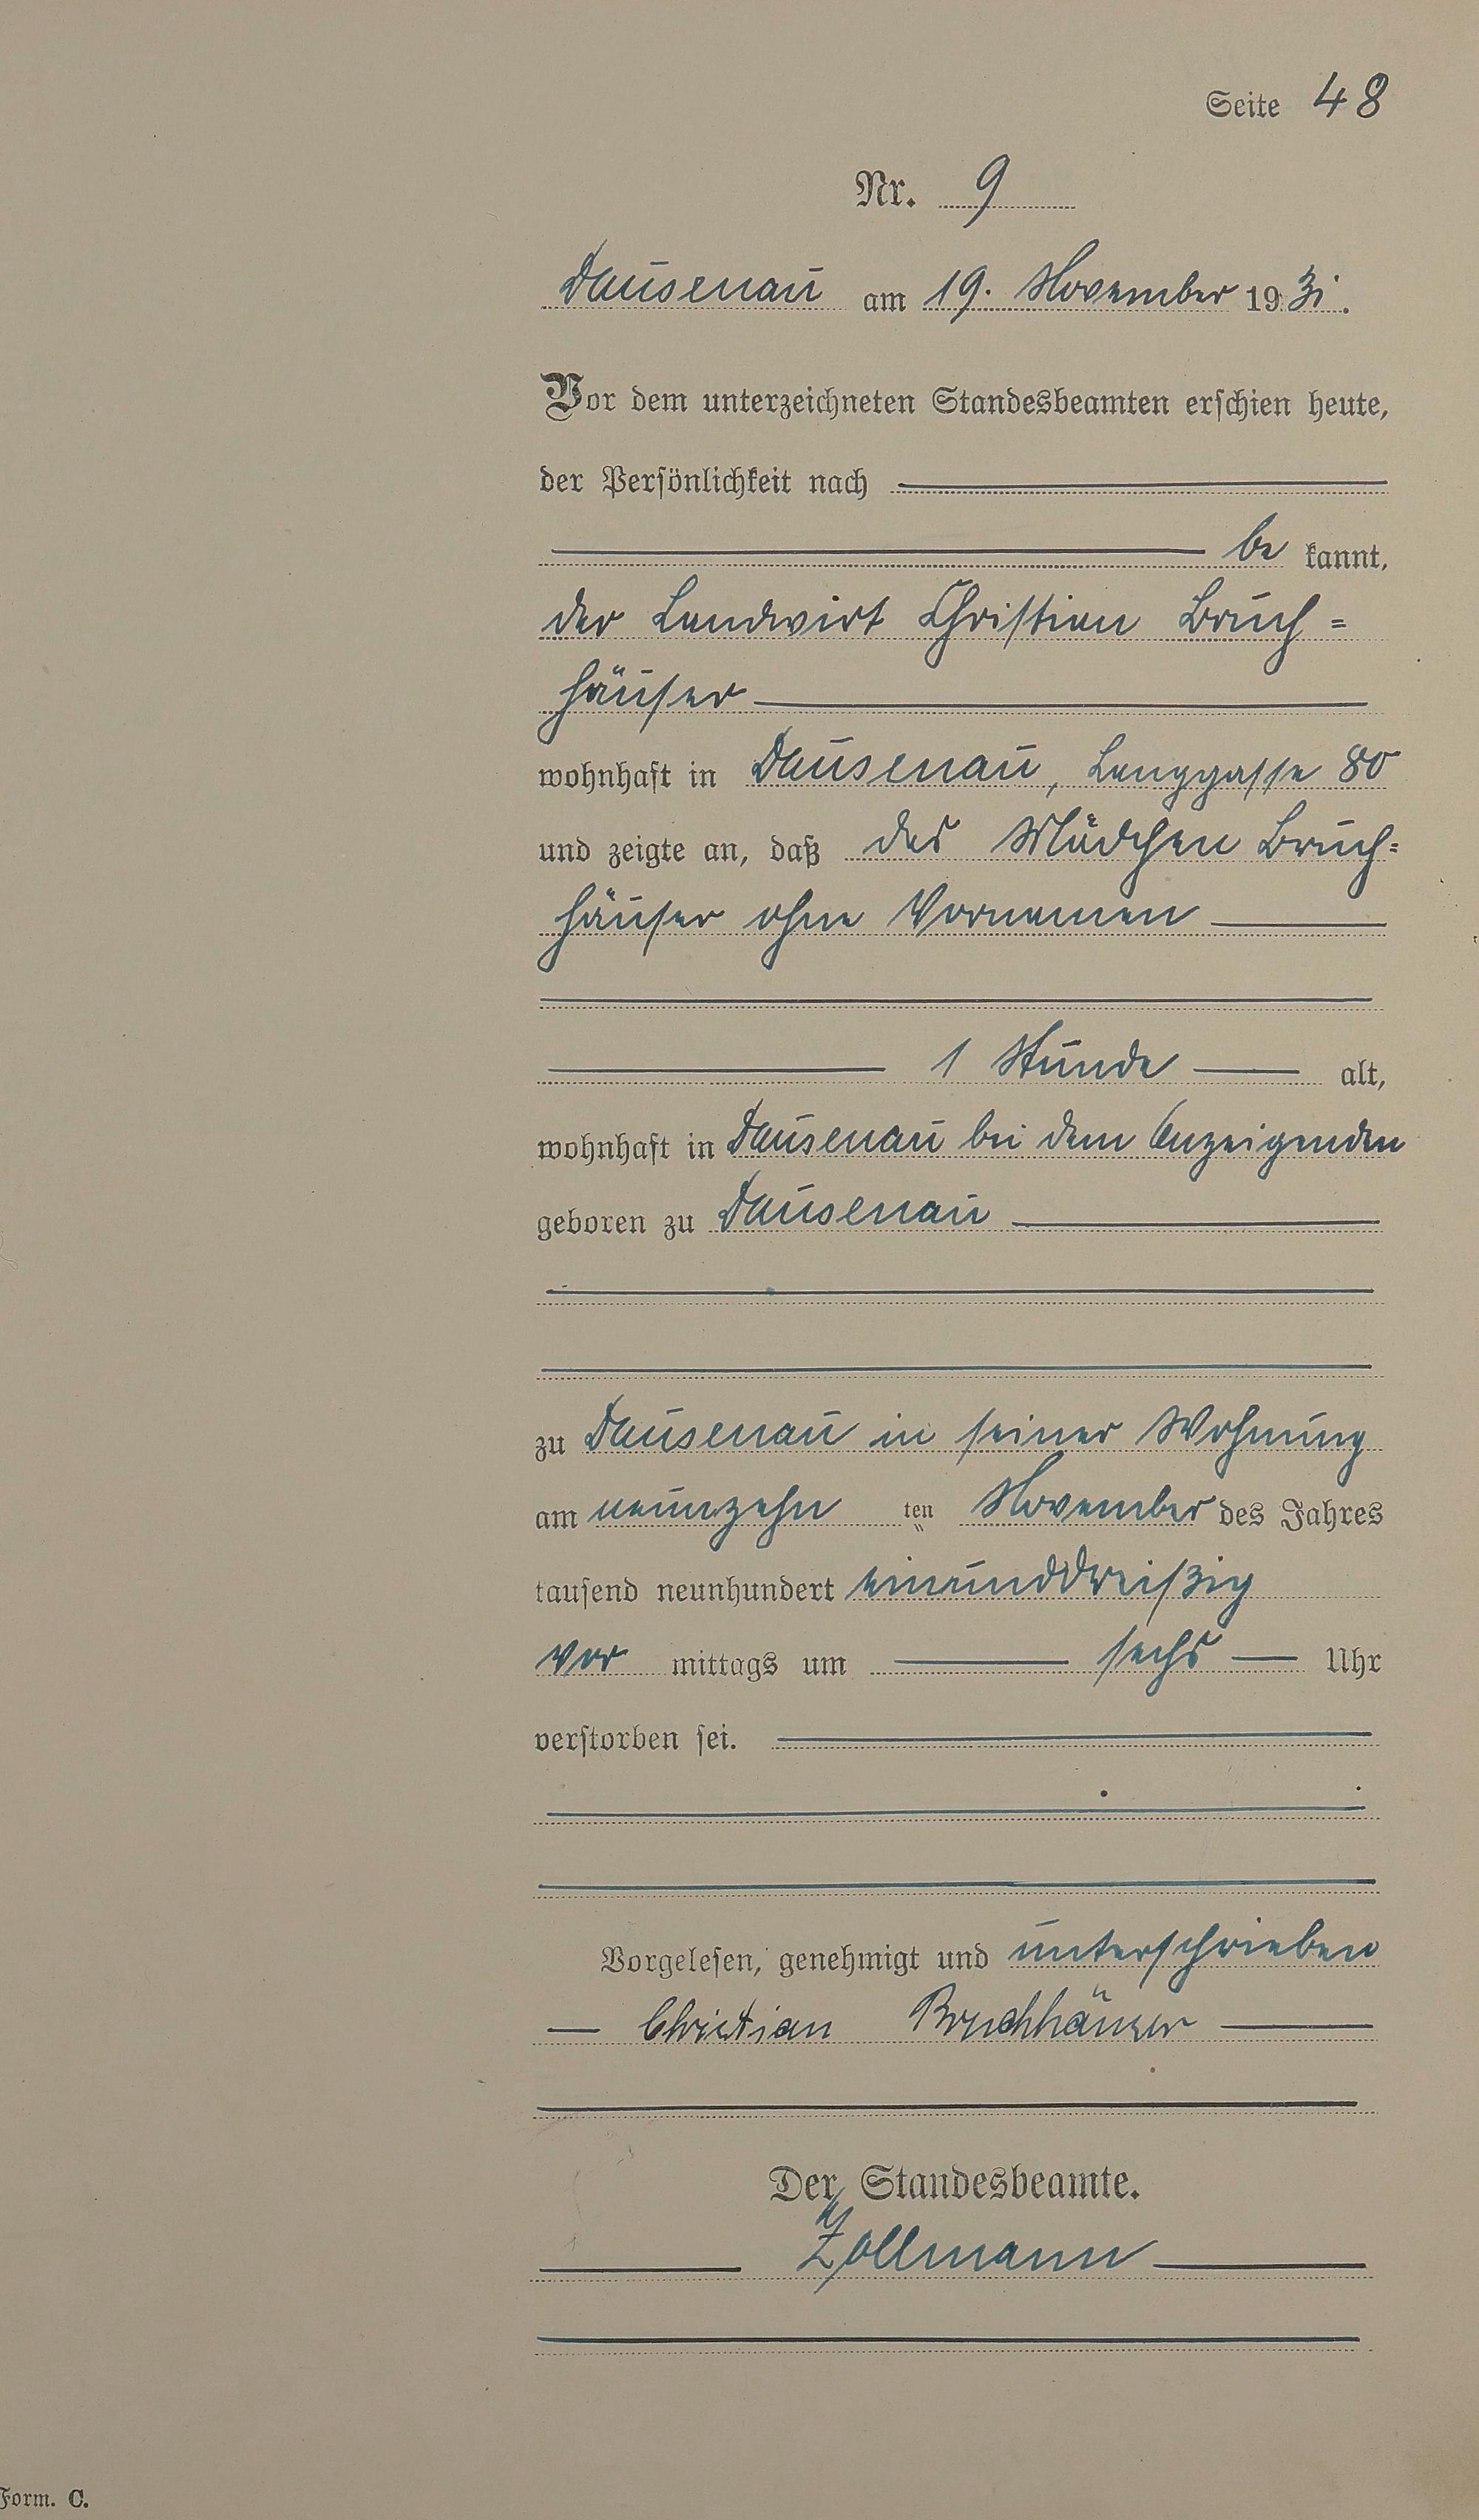 Seite 48
Nr. 9
Dausenau am 19. November 1931.
Vor dem unterzeichneten Standesbeamten erschien heute,
der Persönlichkeit nach
be kannt,
der Landwirt Christian Bruch=
häuser
wohnhaft in Dausenau, Langgasse 80
und zeigte an, daß das Mädchen Bruch=
häuser ohne Vornamen
1 Stunde alt,
wohnhaft in Dausenau bei dem Anzeigenden
geboren zu Dausenau
zu Dausenau in seiner Wohnung
am neunzehn ten November des Jahres
tausend neunhundert einunddreißig
vor mittags um sechs Uhr
verstorben sei.
Vorgelesen, genehmigt und unterschrieben
Christian Bruchhäuser
Der Standesbeamte.
Zollmann
Form. C.